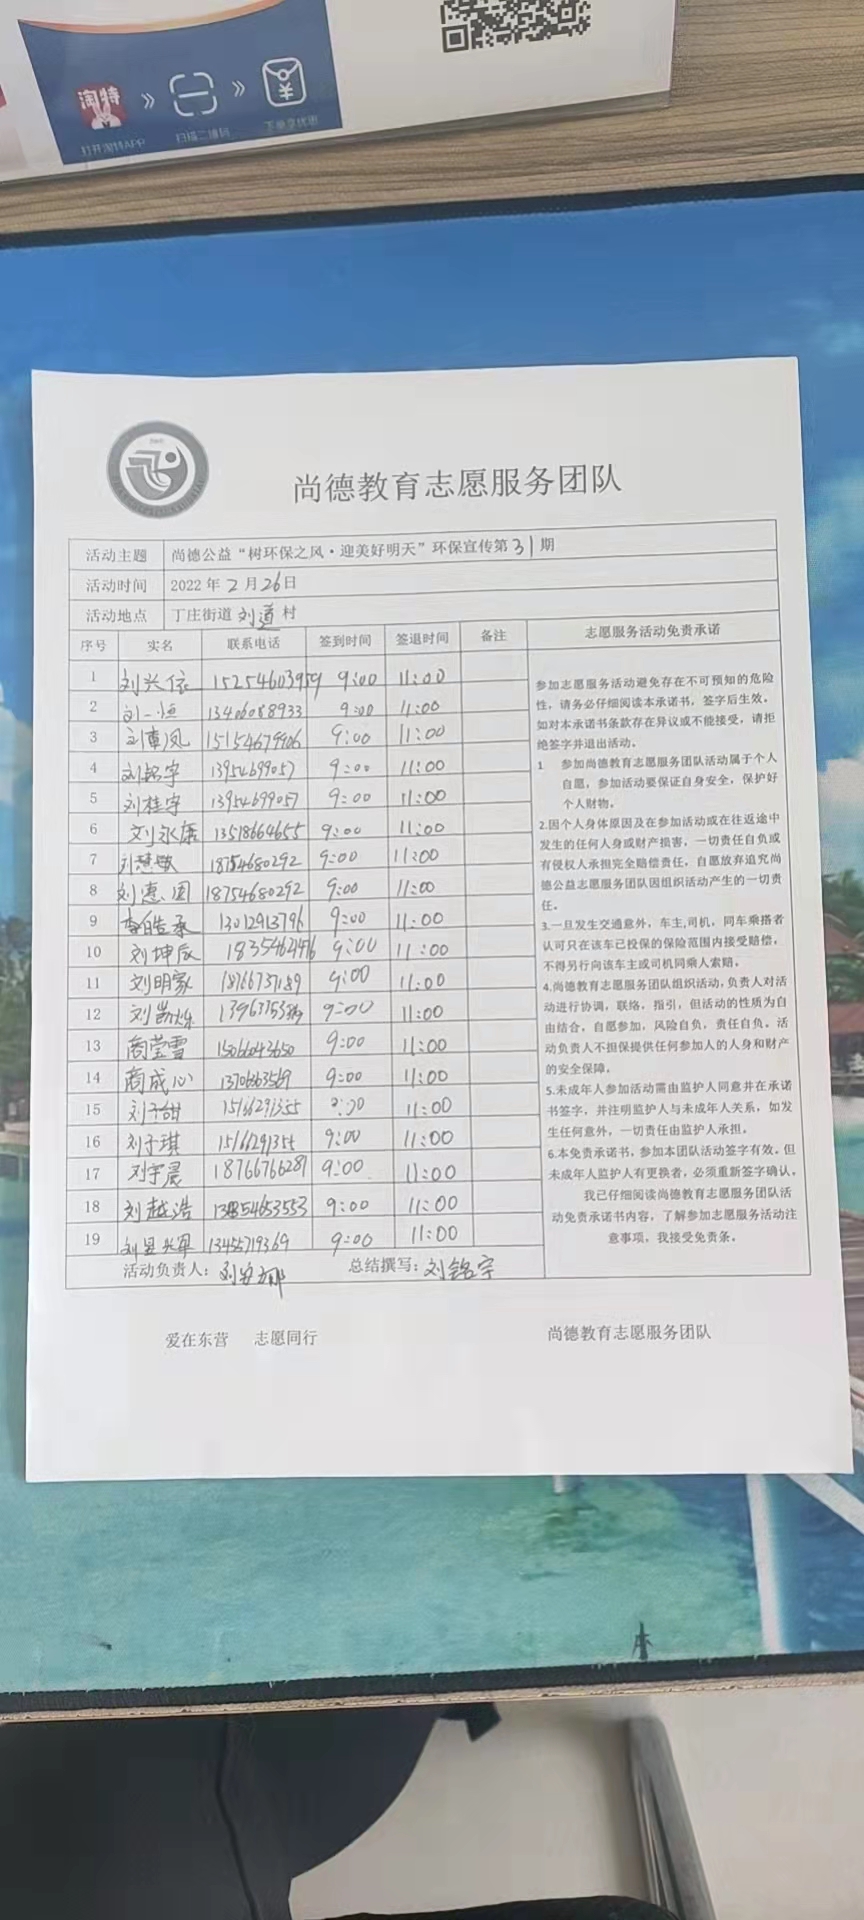 淘特
打开淘特APP
扫描二维码
尚德教育志愿服务团队
活动主题 尚德公益“树环保之风·迎美好明天”环保宣传第31期
活动时间 2022年2月26日
活动地点 丁庄街道刘道村
序号 实名 联系电话 签到时间 签退时间 备注 志愿服务活动免责承诺
1 刘兴依 15254603959 9:00 11:00
2 刘一恒 13406088933 9:00 11:00
3 15154679906 9:00 11:00
4 刘铭宇 13954699057 9:00 11:00
5 刘桂宇 13954699057 9:00 11:00
6 刘永康 13518664655 9:00 11:00
7 刘慧敏 18754680292 9:00 11:00
8 刘惠 18754680292 9:00 11:00
9 李皓承 13012913796 9:00 11:00
10 刘坤辰 9:00 11:00
11 刘明家 18766737189 9:00 11:00
12 9:00 11:00
13 商莹雪 15066043650 9:00 11:00
14 商成心 9:00 11:00
15 刘子甜 15166291355 11:00
16 刘子琪 15166291355 9:00 11:00
17 刘宇晨 18766766281 9:00 11:00
18 刘越浩 9:00 11:00
19 13455719369 9:00 11:00
参加志愿服务活动避免存在不可预知的危险
性,请务必仔细阅读本承诺书,签字后生效。
如对本承诺书条款存在异议或不能接受,请拒
绝签字并退出活动。
1 参加尚德教育志愿服务团队活动属于个人
自愿,参加活动要保证自身安全,保护好
个人财物。
2.因个人身体原因及在参加活动或在往返途中
发生的任何人身或财产损害,一切责任自负或
有侵权人承担完全赔偿责任,自愿放弃追究尚
德公益志愿服务团队因组织活动产生的一切责
任。
3.一旦发生交通意外,车主,司机,同车乘搭者
认可只在该车已投保的保险范围内接受赔偿,
不得另行向该车主或司机同乘人索赔。
4.尚德教育志愿服务团队组织活动,负责人对活
动进行协调,联络,指引,但活动的性质为自
由结合,自愿参加,风险自负,责任自负。活
动负责人不担保提供任何参加人的人身和财产
的安全保障。
5.未成年人参加活动需由监护人同意并在承诺
书签字,并注明监护人与未成年人关系,如发
生任何意外,一切责任由监护人承担。
6.本免责承诺书,参加本团队活动签字有效。但
未成年人监护人有更换者,必须重新签字确认。
我已仔细阅读尚德教育志愿服务团队活
动免责承诺书内容,了解参加志愿服务活动注
意事项,我接受免责条。
活动负责人: 总结撰写:刘铭宇
爱在东营 志愿同行 尚德教育志愿服务团队